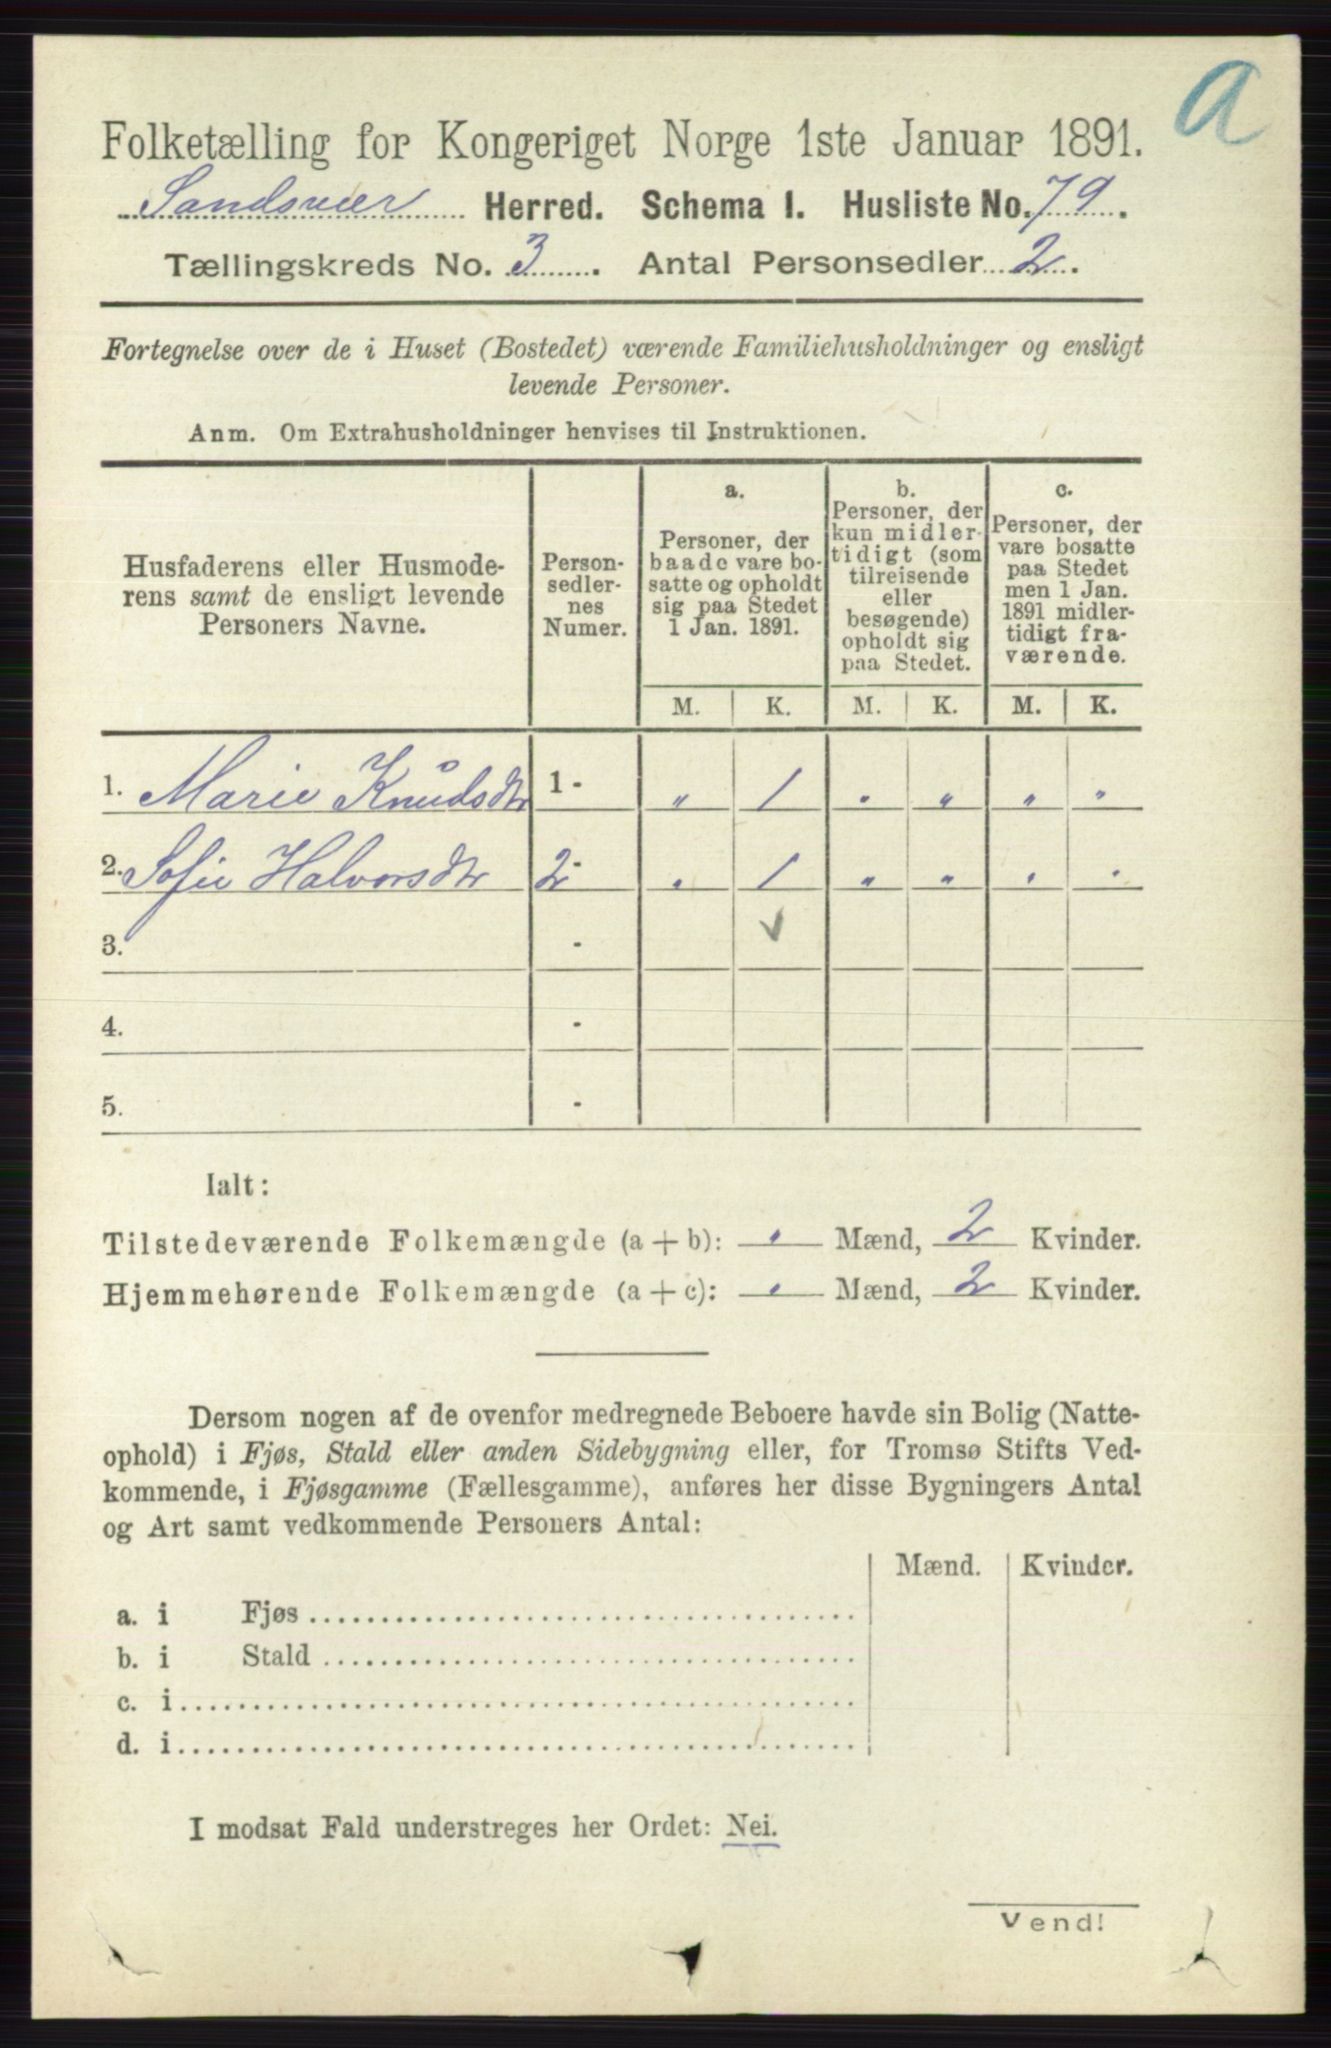 a
Folketælling for Kongeriget Norge 1ste Januar 1891.
Sandsvær Herred. Schema I. Husliste No. 79.
Tællingskreds No. 3. Antal Personsedler 2.
Fortegnelse over de i Huset (Bostedet) værende Familiehusholdninger og ensligt
levende Personer.
Anm. Om Extrahusholdninger henvises til Instruktionen.
Husfaderens eller Husmode-
rens samt de ensligt levende
Personers Navne.
Person-
sedler-
nes
Numer.
a.
Personer, der
baade vare bo-
satte og opholdt
sig paa Stedet
1 Jan. 1891.
b.
Personer, der
kun midler-
tidigt (som
tilreisende
eller
besøgende)
opholdt sig
paa Stedet.
c.
Personer, der
vare bosatte
paa Stedet
men 1 Jan.
1891 midler-
tidigt fra-
værende.
M. K. M. K. M. K.
1. Marie Knudsdtr 1 - " 1 " " " "
2. Sofie Halvorsdtr 2 - " 1 " " " "
3. -
4. -
5. -
Ialt:
Tilstedeværende Folkemængde (a + b): " Mænd, 2 Kvinder.
Hjemmehørende Folkemængde (a + c): " Mænd, 2 Kvinder.
Dersom nogen af de ovenfor medregnede Beboere havde sin Bolig (Natte-
ophold) i Fjøs, Stald eller anden Sidebygning eller, for Tromsø Stifts Ved-
kommende, i Fjøsgamme (Fællesgamme), anføres her disse Bygningers Antal
og Art samt vedkommende Personers Antal:
Mænd. Kvinder.
a. i Fjøs
b. i Stald
c. i
d. i
I modsat Fald understreges her Ordet: Nei.
Vend!